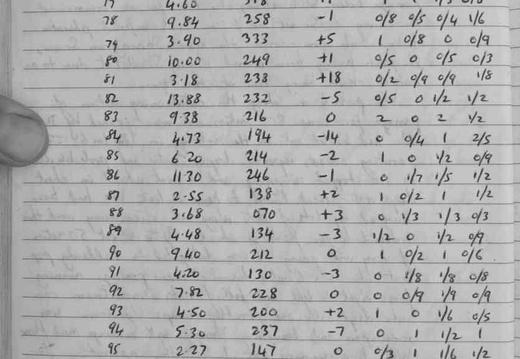 78 9.84 258 -1 0/8 0/5 0/4 1/6
79 3.90 333 +5 1 0/8 0 0/9
80 10.00 249 +1 0/5 0 0/5 0/3
81 3.18 238 +18 0/2 0/9 0/9 1/8
82 13.88 232 -5 0/5 0 1/2 1/2
83 9.38 216 0 2 0 2 1/2
84 4.73 194 -14 0 0/4 1 2/5
85 6.20 214 -2 1 0 1/2 0/9
86 11.30 246 -1 0 1/7 1/5 1/2
87 2.55 138 +2 1 0/2 1 1/2
88 3.68 070 +3 0 1/3 1/3 0/3
89 4.48 134 -3 1/2 0 1/2 0/9
90 9.40 212 0 1 0/2 1 0/6
91 4.20 130 -3 0 1/8 1/8 0/8
92 7.82 228 0 0 0/9 1/9 0/9
93 4.50 200 +2 1 0 1/6 0/5
94 5.30 237 -7 0 1 1/2 1
95 2.27 147 0 0/3 1 1/6 1/2